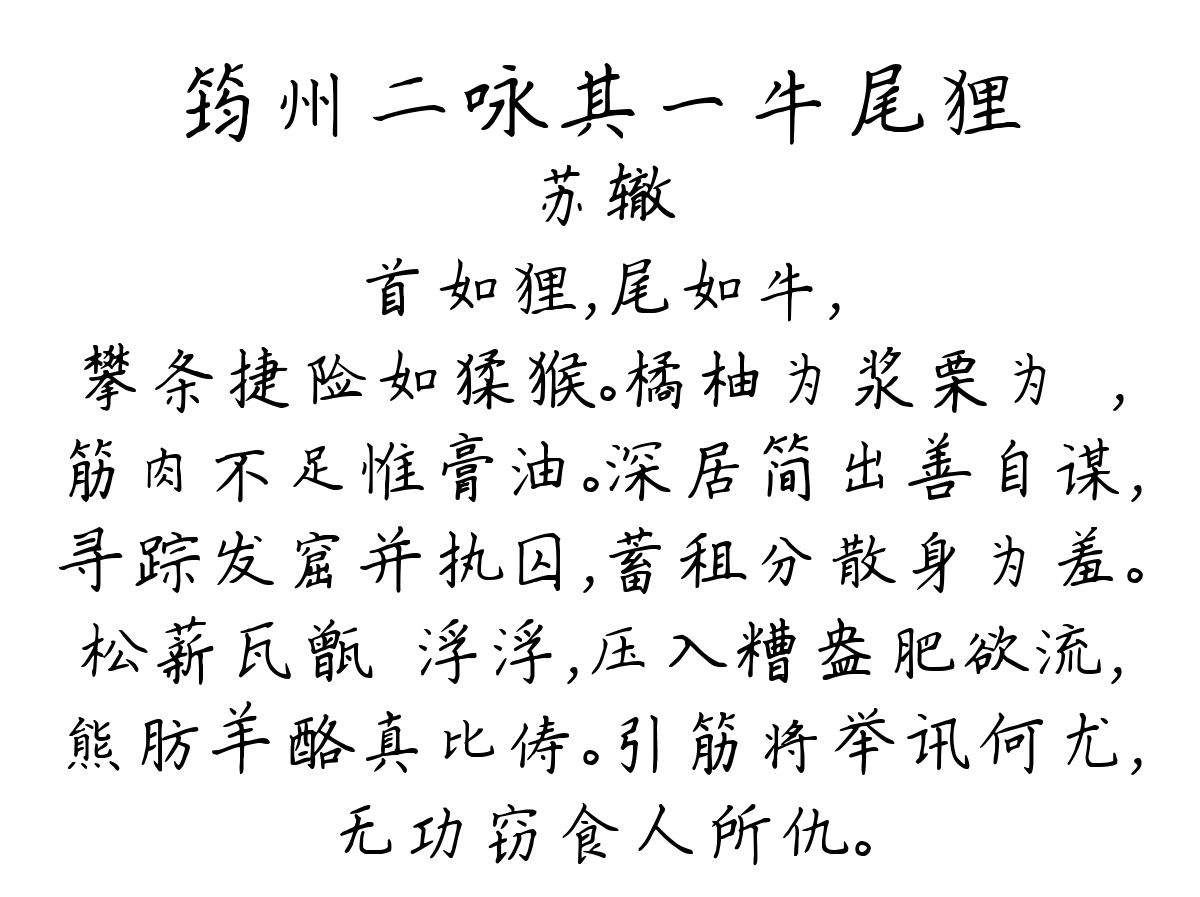 筠州二咏其一牛尾狸
苏辙
首如狸,尾如牛,
攀条捷险如猱猴。橘柚为浆栗为 ,
筋肉不足惟膏油。深居简出善自谋,
寻踪发窟并执囚,蓄租分散身为羞。
松薪瓦甑 浮浮,压入糟盎肥欲流,
熊肪羊酪真比俦。引筋将举讯何尤,
无功窃食人所仇。